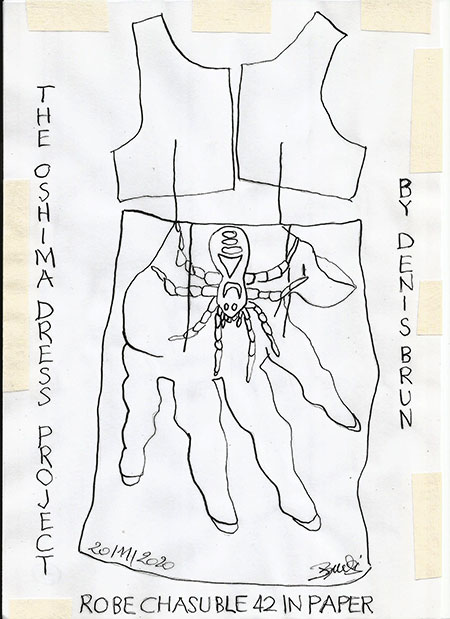 THE OSHIMA DRESS PROJECT
BY DENIS BRUN
20/11/2020
ROBE CHASUBLE 42 IN PAPER